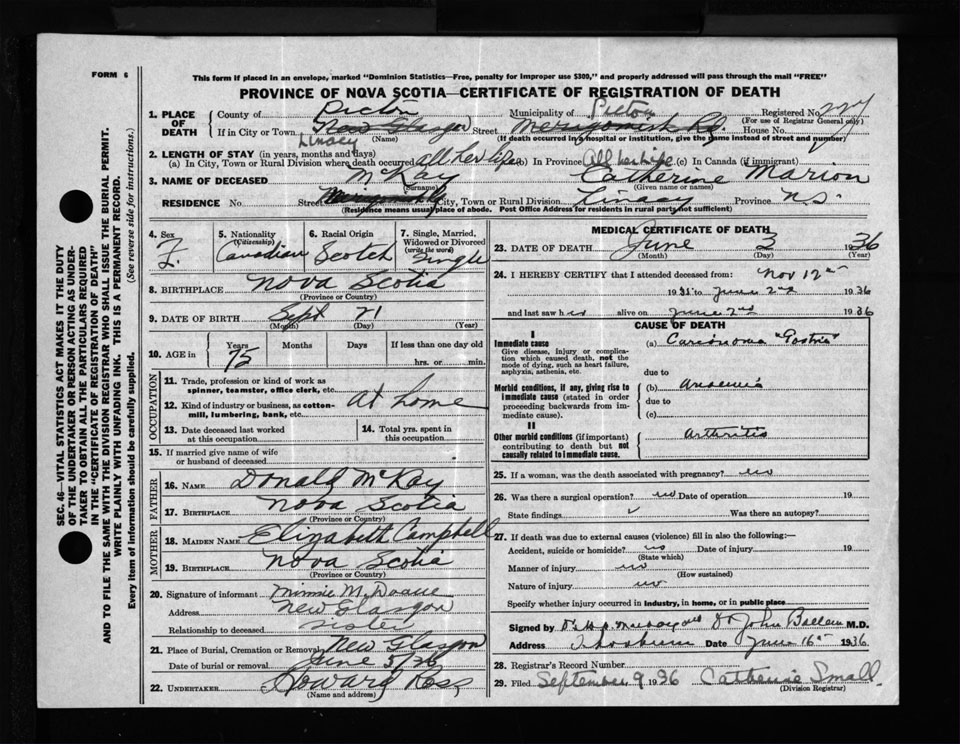 FORM 6
This form if placed in an envelope, marked "Dominion Statistics—Free, penalty for improper use $300," and properly addressed will pass through the mail "FREE"
PROVINCE OF NOVA SCOTIA—CERTIFICATE OF REGISTRATION OF DEATH
1. PLACE OF DEATH County of Pictou Municipality of Pictou Registered No. 227
(For use of Registrar General only)
If in City or Town New Glasgow Street Merigomish Rd House No.
Linacy (Name) (If death occurred in hospital or institution, give the name instead of street and number)
2. LENGTH OF STAY (in years, months and days)
(a) In City, Town or Rural Division where death occurred all her life (b) In Province All her Life (c) In Canada (if immigrant)
3. NAME OF DECEASED McKay Catherine Marion
(Surname) (Given name or names)
RESIDENCE No Street Merigomish Rd City, Town or Rural Division Linacy Province N.S.
(Residence means usual place of abode. Post Office Address for residents in rural parts not sufficient)
4. Sex F.
5. Nationality (Citizenship) Canadian
6. Racial Origin Scotch
7. Single, Married, Widowed or Divorced (write the word) Single
8. BIRTHPLACE Nova Scotia
(Province or Country)
9. DATE OF BIRTH Sept 21
(Month) (Day) (Year)
10. AGE in Years 75 Months Days If less than one day old
hrs. or min.
OCCUPATION
11. Trade, profession or kind of work as spinner, teamster, office clerk, etc.
12. Kind of industry or business, as cotton-mill, lumbering, bank, etc. At home
13. Date deceased last worked at this occupation
14. Total yrs. spent in this occupation
15. If married give name of wife or husband of deceased
FATHER
16. NAME Donald McKay
17. BIRTHPLACE Nova Scotia
(Province or Country)
MOTHER
18. MAIDEN NAME Elizabeth Campbell
19. BIRTHPLACE Nova Scotia
(Province or Country)
20. Signature of informant Minnie M. Doane
Address New Glasgow
Relationship to deceased sister
21. Place of Burial, Cremation or Removal New Glasgow
Date of burial or removal June 5/36
22. UNDERTAKER Howard Ross
(Name and address)
MEDICAL CERTIFICATE OF DEATH
23. DATE OF DEATH June 3 1936
(Month) (Day) (Year)
24. I HEREBY CERTIFY that I attended deceased from: Nov 12th
1931 to June 2nd 1936
and last saw her alive on June 2nd 1936
CAUSE OF DEATH
I
Immediate cause
Give disease, injury or complication which caused death, not the mode of dying, such as heart failure, asphyxia, asthenia, etc.
(a) Carcinoma
due to
Morbid conditions, if any, giving rise to immediate cause (stated in order proceeding backwards from immediate cause).
(b) anaemia
due to
(c)
II
Other morbid conditions (if important) contributing to death but not causally related to immediate cause.
Arthritis
25. If a woman, was the death associated with pregnancy? no
26. Was there a surgical operation? no Date of operation 19
State findings Was there an autopsy?
27. If death was due to external causes (violence) fill in also the following:—
Accident, suicide or homicide? no Date of injury 19
(State which)
Manner of injury no
(How sustained)
Nature of injury no
Specify whether injury occurred in industry, in home, or in public place
Signed by Dr John M.D.
Address Thorburn Date June 16th 1936
28. Registrar's Record Number
29. Filed September 9 1936 Catherine Small
(Division Registrar)
SEC. 46—VITAL STATISTICS ACT MAKES IT THE DUTY
OF THE UNDERTAKER OR PERSON ACTING AS UNDER-
TAKER TO OBTAIN ALL THE PARTICULARS REQUIRED
IN THE "CERTIFICATE OF REGISTRATION OF DEATH"
AND TO FILE THE SAME WITH THE DIVISION REGISTRAR WHO SHALL ISSUE THE BURIAL PERMIT.
WRITE PLAINLY WITH UNFADING INK. THIS IS A PERMANENT RECORD.
Every item of information should be carefully supplied. (See reverse side for instructions.)